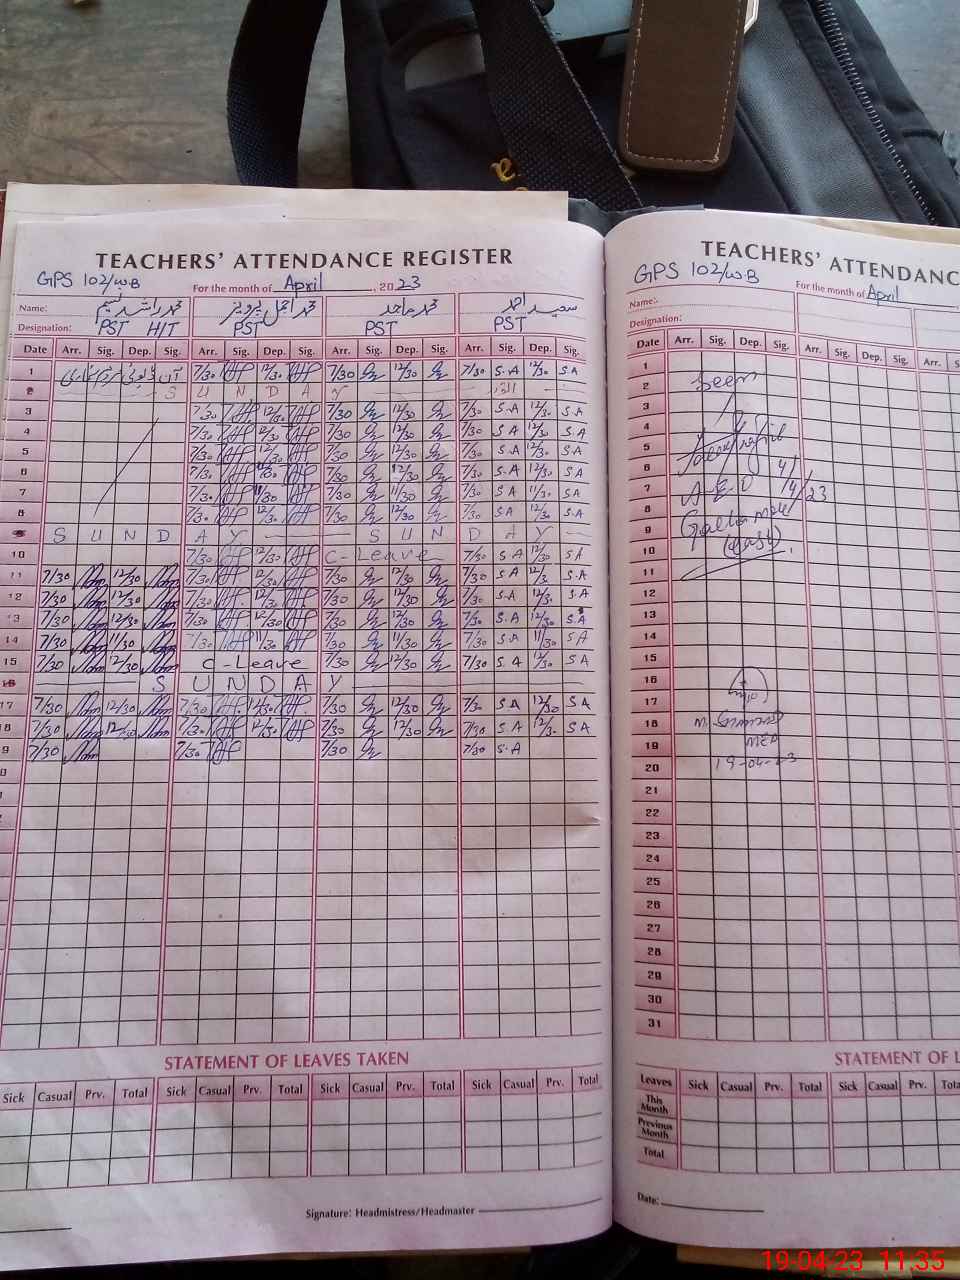 TEACHERS' ATTENDANCE REGISTER
GPS 102/W.B
For the month of April, 2023
Name: محمد راشد نسیم محمد اجمل پرویز محمد ماجد سعید احمد
Designation: PST HIT PST PST PST
Date Arr. Sig. Dep. Sig. Arr. Sig. Dep. Sig. Arr. Sig. Dep. Sig. Arr. Sig. Dep. Sig.
1 آن ڈیوٹی 7/30 12/30 7/30 12/30 7/30 S.A 12/30 S.A
2 SUNDAY
3 7/30 12/30 7/30 12/30 7/30 S.A 12/30 S.A
4 7/30 12/30 7/30 12/30 7/30 S.A 12/30 S.A
5 7/30 12/30 7/30 12/30 7/30 S.A 12/30 S.A
6 7/30 12/30 7/30 12/30 7/30 S.A 12/30 S.A
7 7/30 11/30 7/30 11/30 7/30 S.A 11/30 S.A
8 7/30 12/30 7/30 12/30 7/30 S.A 12/30 S.A
9 SUNDAY SUNDAY
10 7/30 12/30 C-Leave 7/30 S.A 12/30 S.A
11 7/30 12/30 7/30 12/30 7/30 12/30 7/30 S.A 12/3. S.A
12 7/30 12/30 7/30 12/30 7/30 12/30 7/30 S.A 12/3. S.A
13 7/30 12/30 7/30 12/30 7/30 12/30 7/30 S.A 12/30 S.A
14 7/30 11/30 7/30 11/30 7/30 11/30 7/30 S.A 11/30 S.A
15 7/30 12/30 C-Leave 7/30 12/30 7/30 S.A 12/30 S.A
16 SUNDAY
17 7/30 12/30 7/30 12/30 7/30 12/30 7/30 S.A 12/30 S.A
18 7/30 12/30 7/30 12/30 7/30 12/30 7/30 S.A 12/3. S.A
9 7/30 7/30 7/30 7/30 S.A
0
STATEMENT OF LEAVES TAKEN
Sick Casual Prv. Total Sick Casual Prv. Total Sick Casual Prv. Total Sick Casual Prv. Total
Signature: Headmistress/Headmaster
TEACHERS' ATTENDANC
GPS 102/W.B
For the month of April
Name:
Designation:
Date Arr. Sig. Dep. Sig. Arr. Sig. Dep. Sig. Arr. S
1
2 Seen
3
4
5
6
7 A.E.O 4/4/23
8
9
10 (East)
11
12
13
14
15
16
17
18
19 MEA
20 19-04-23
21
22
23
24
25
26
27
28
29
30
31
STATEMENT OF L
Leaves Sick Casual Prv. Total Sick Casual Prv. Total Sick
This Month
Previous Month
Total
Date:
19-04-23 11.35